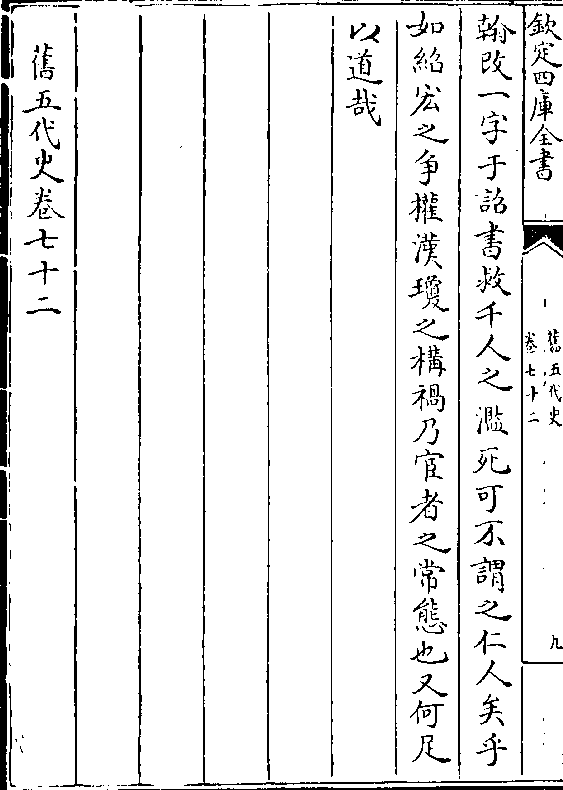 欽定四庫全書
舊五代史
卷七十二
九
翰改一字于詔書救千人之濫死可不謂之仁人矣乎
如紹宏之爭權漢瓊之構禍乃宦者之常態也又何足
以道哉
舊五代史卷七十二